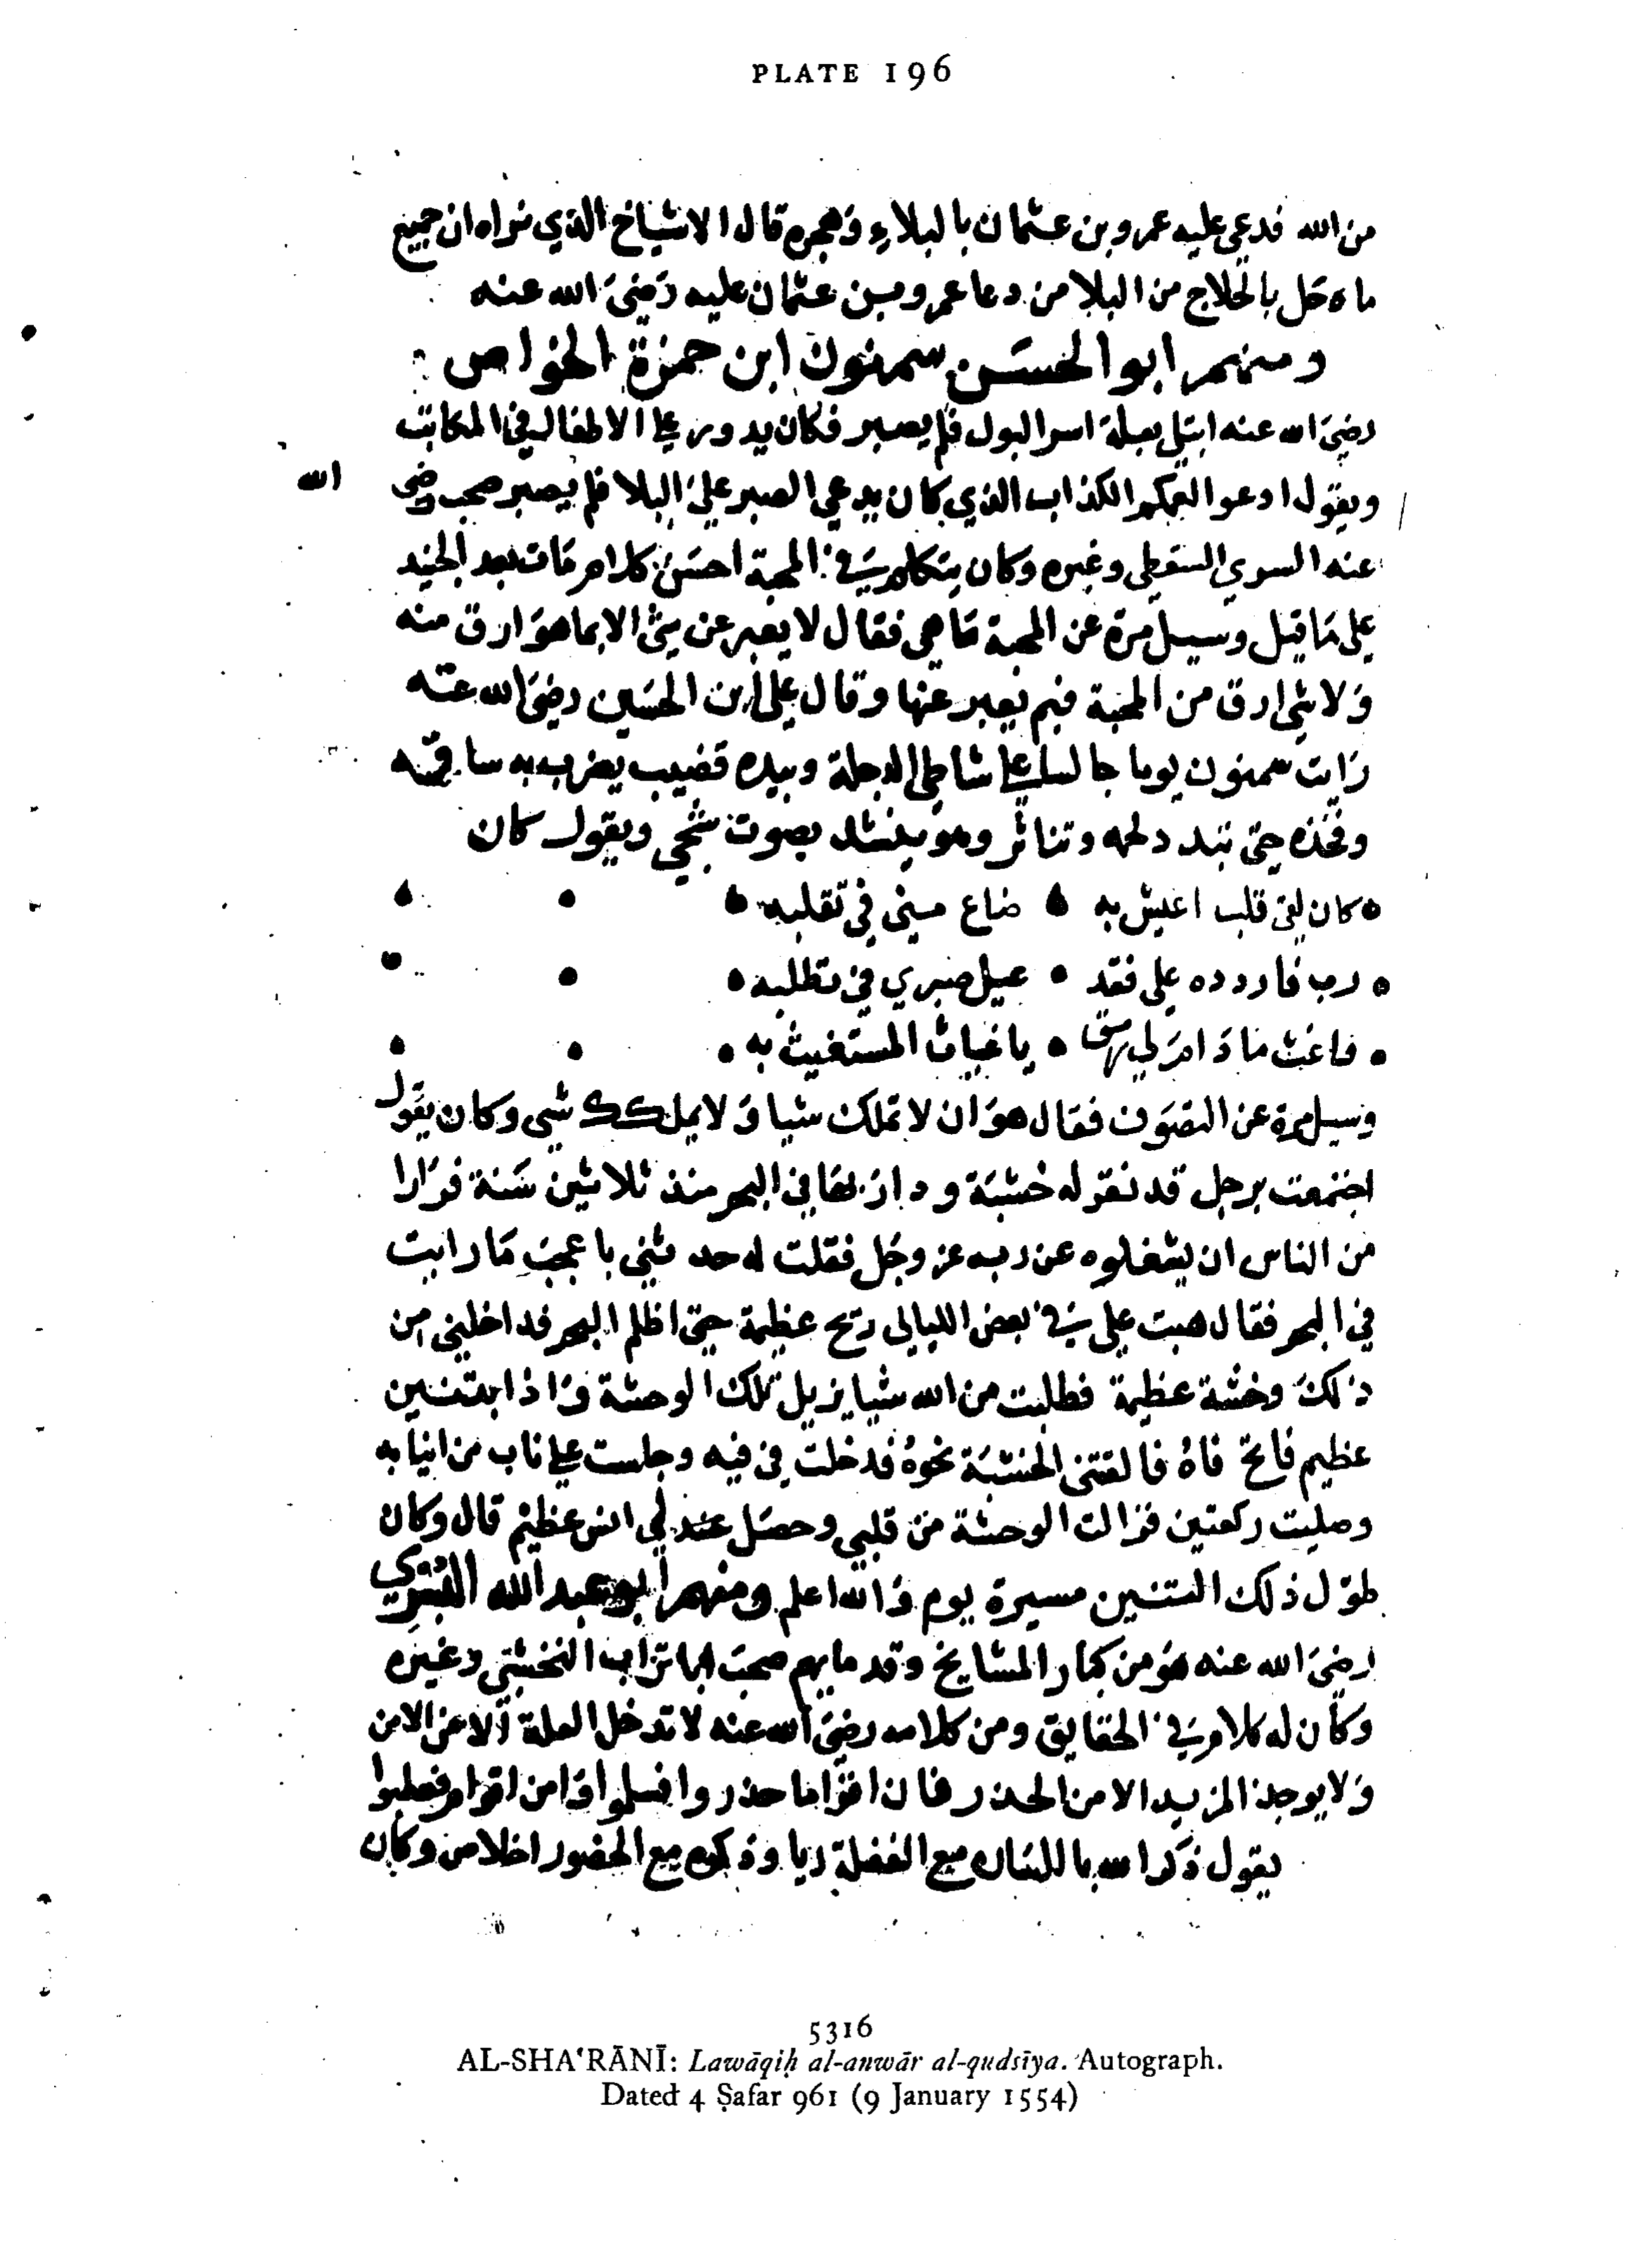 PLATE 196
من الله فدعى عليه عمرو بن عثمان بالبلاء وهجره قال الاشياخ الذي نراه ان جميع
ما حل بالحلاج من البلا من دعا عمرو بن عثمان عليه رضي الله عنه
ومنهم ابو الحسن سمنون ابن حمزة الخواص
رضي الله عنه ابتلي بعلة اسر البول فلم يصبر فكان يدور على الاطفال في المكاتب
ويقول ادعوا لعمكم الكذاب الذي كان يدعي الصبر على البلا فلم يصبر صحب رضي الله
عنه السري السقطي وغيره وكان يتكلم في المحبة احسن كلام مات بعد الجنيد
على ما قيل وسيل مرة عن المحبة ما هي فقال لا يعبر عن شي الا بما هو ارق منه
ولا شي ارق من المحبة فبم نعبر عنها وقال علي ابن الحسين رضي الله عنه
رايت سمنون يوما جالسا على شاطي الدجلة وبيده قضيب يضرب به ساقيه
وفخذه حتى تبدد لحمه وتناثر وهو ينشد بصوت شجي ويقول كان
كان لي قلب اعيش به ضاع مني في تقلبه
رب فاردده علي فقد عيل صبري في تطلبه
فاغث ما دام لي رمق يا غياث المستغيث به
وسيل مرة عن التصوف فقال هو ان لا تملك شيا ولا يملكك شي وكان يقول
اجتمعت برجل قد نقر له خشبة ودار بها في البحر منذ ثلاثين سنة فرارا
من الناس ان يشغلوه عن ربه عز وجل فقلت له حدثني باعجب ما رايت
في البحر فقال هبت علي في بعض الليالي ريح عظيمة حتى اظلم البحر فداخلني من
ذلك وحشة عظيمة فطلبت من الله شيا يزيل تلك الوحشة واذا بتنين
عظيم فاتح فاه فالقتني الخشبة نحوه فدخلت في فيه وجلست على ناب من انيابه
وصليت ركعتين فزالت الوحشة من قلبي وحصل عندلي انس عظيم قال وكان
طول ذلك التنين مسيرة يوم والله اعلم ومنهم ابو عبد الله البسري
رضي الله عنه هو من كبار المشايخ وقدمايهم صحب ابا تراب النخشبي وغيره
وكان له كلام في الحقايق ومن كلامه رضي الله عنه لا تدخل العلة الا من الامن
ولا يوجد المزيد الا من الحذر فان اقواما حذروا فسلموا وامن اقوام فعطبوا
يقول ذكر الله باللسان مع الغفلة ريا وذكره مع الحضور اخلاص وكان
5316
AL-SHAʻRĀNĪ: Lawāqiḥ al-anwār al-qudsīya. Autograph.
Dated 4 Ṣafar 961 (9 January 1554)